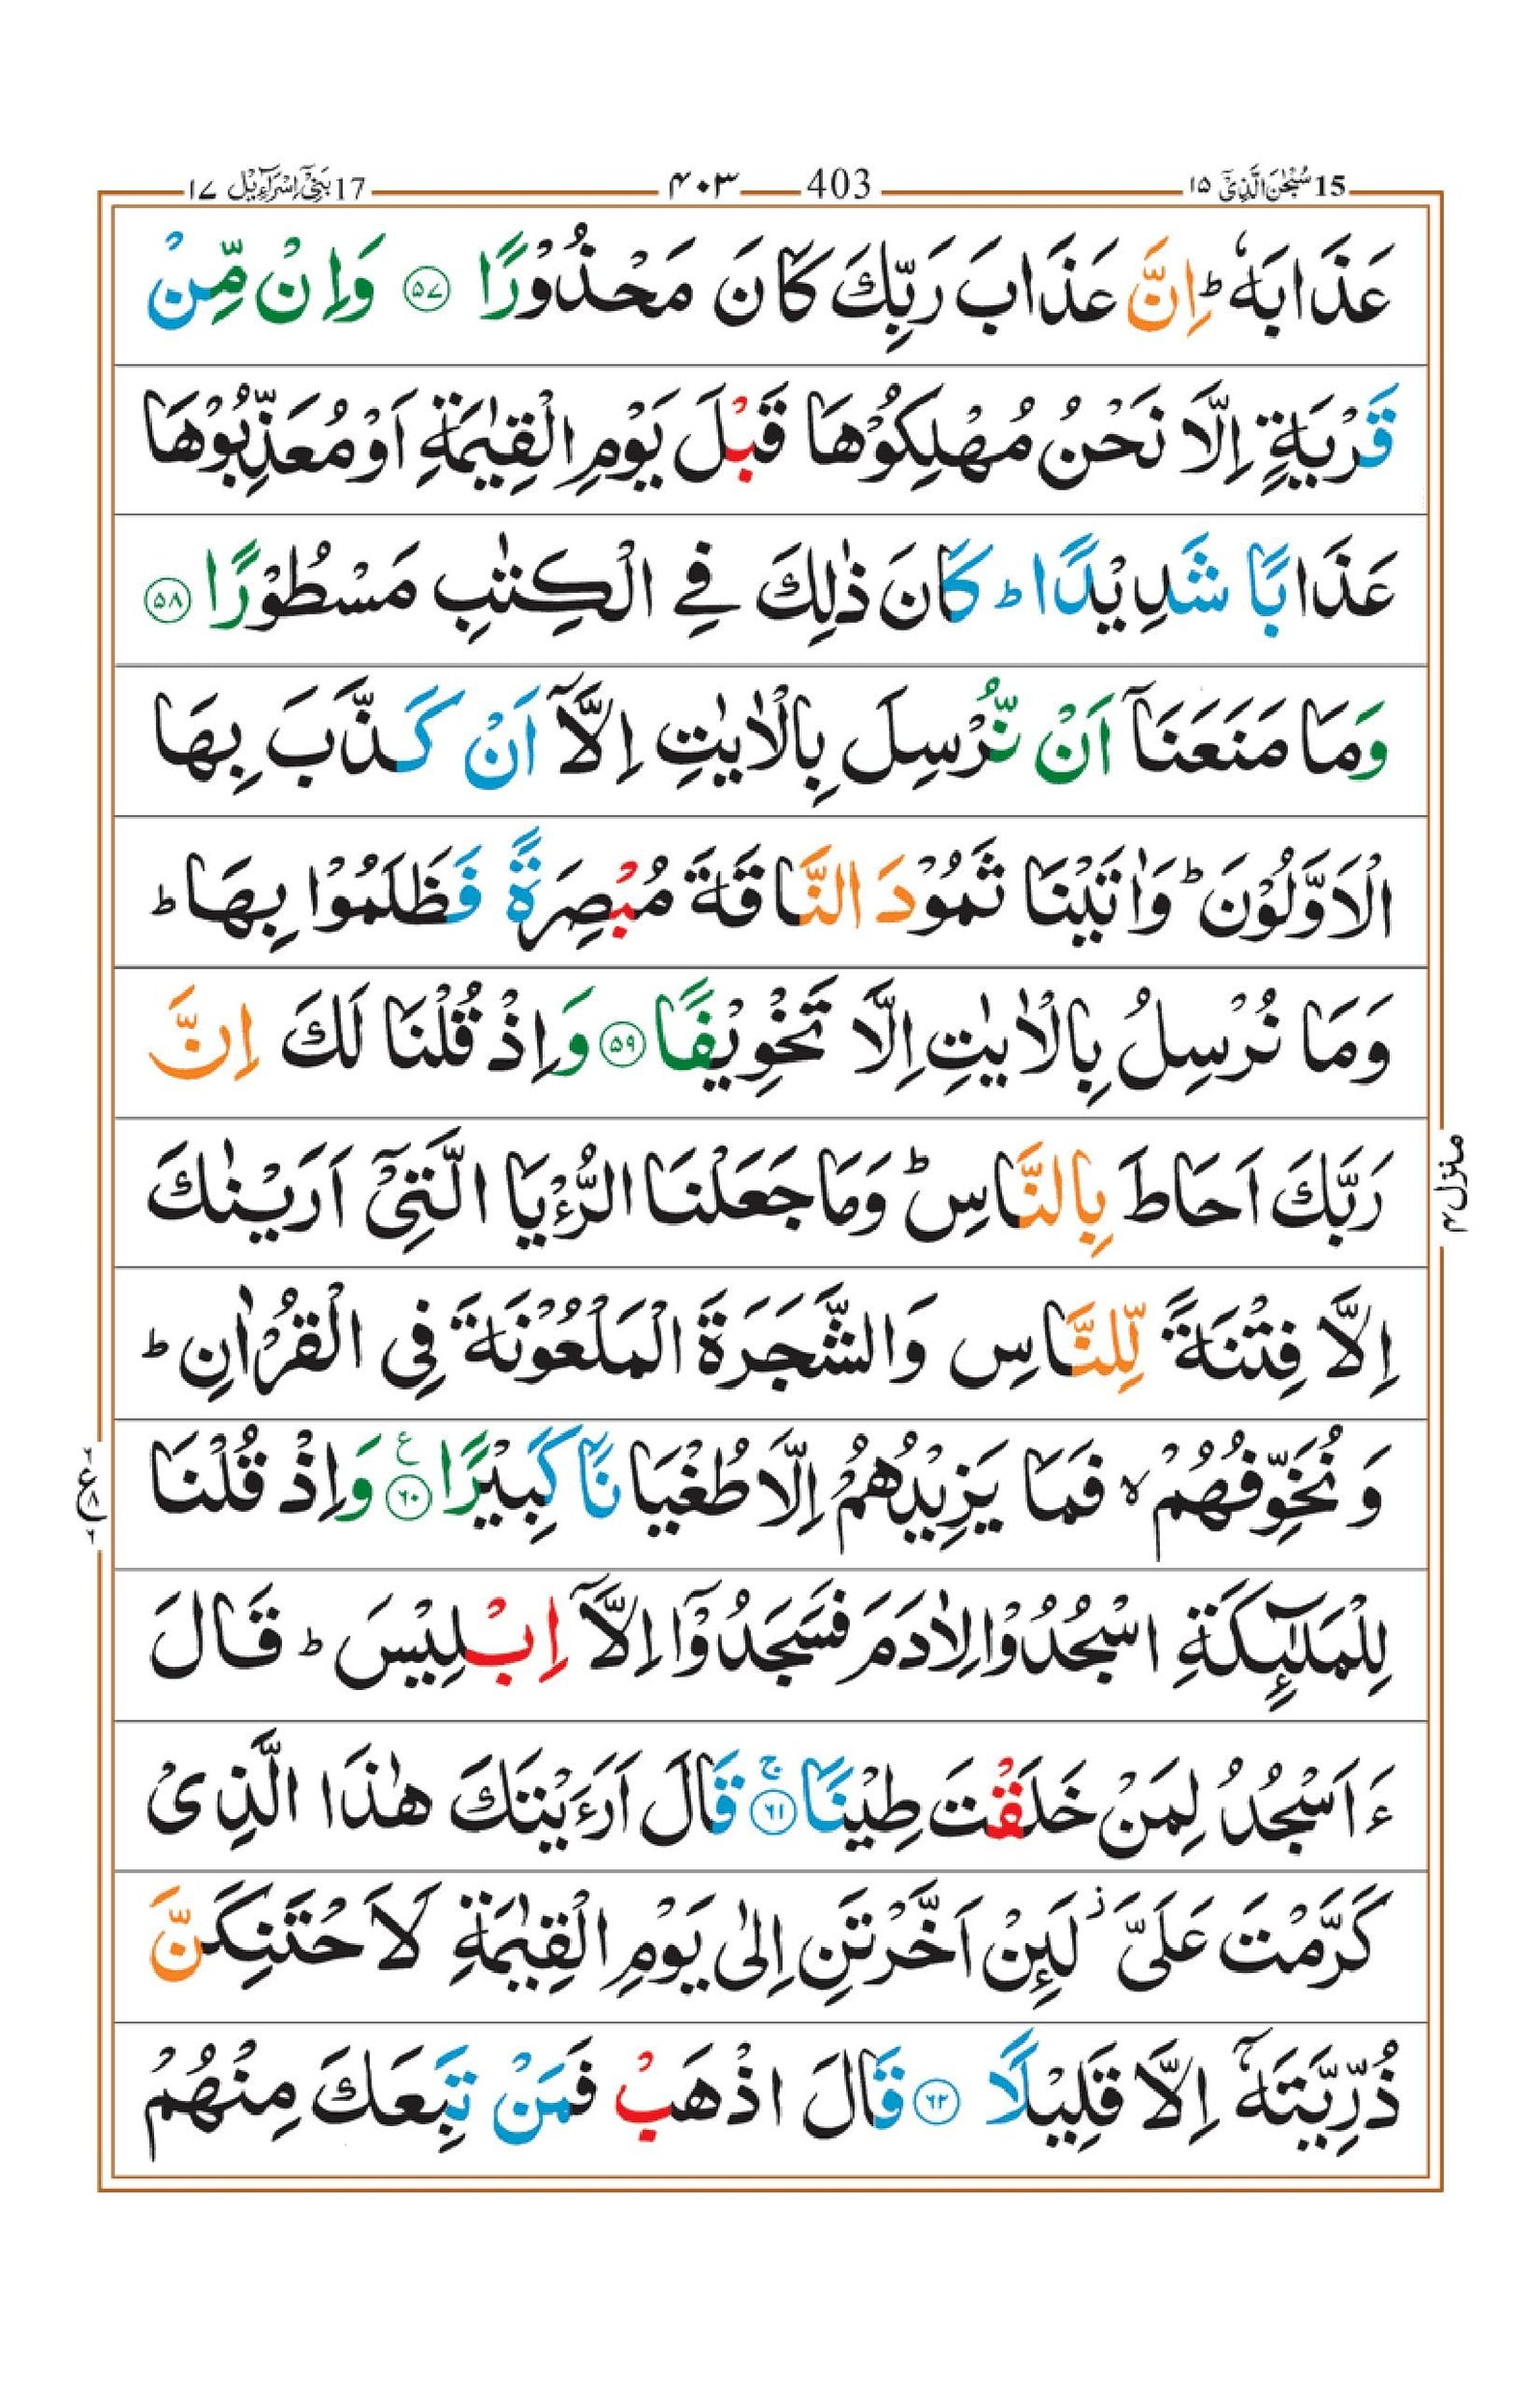 15 سُبْحٰنَ الَّذِیْۤ ۱۵
403 ۴۰۳
17 بَنِیْۤ اِسْرَآءِیْل ۱۷
عَذَابَهٗ ؕ اِنَّ عَذَابَ رَبِّكَ كَانَ مَحْذُوْرًا ﴿۵۷﴾ وَاِنْ مِّنْ
قَرْیَةٍ اِلَّا نَحْنُ مُهْلِكُوْهَا قَبْلَ یَوْمِ الْقِیٰمَةِ اَوْ مُعَذِّبُوْهَا
عَذَابًا شَدِیْدًا ؕ كَانَ ذٰلِكَ فِی الْكِتٰبِ مَسْطُوْرًا ﴿۵۸﴾
وَمَا مَنَعَنَاۤ اَنْ نُّرْسِلَ بِالْاٰیٰتِ اِلَّاۤ اَنْ كَذَّبَ بِهَا
الْاَوَّلُوْنَ ؕ وَاٰتَیْنَا ثَمُوْدَ النَّاقَةَ مُبْصِرَةً فَظَلَمُوْا بِهَا ؕ
وَمَا نُرْسِلُ بِالْاٰیٰتِ اِلَّا تَخْوِیْفًا ﴿۵۹﴾ وَاِذْ قُلْنَا لَكَ اِنَّ
رَبَّكَ اَحَاطَ بِالنَّاسِ ؕ وَمَا جَعَلْنَا الرُّءْیَا الَّتِیْۤ اَرَیْنٰكَ
اِلَّا فِتْنَةً لِّلنَّاسِ وَالشَّجَرَةَ الْمَلْعُوْنَةَ فِی الْقُرْاٰنِ ؕ
وَنُخَوِّفُهُمْ ۙ فَمَا یَزِیْدُهُمْ اِلَّا طُغْیَانًا كَبِیْرًا ﴿۶۰﴾ ع وَاِذْ قُلْنَا
لِلْمَلٰٓئِكَةِ اسْجُدُوْا لِاٰدَمَ فَسَجَدُوْۤا اِلَّاۤ اِبْلِیْسَ ؕ قَالَ
ءَاَسْجُدُ لِمَنْ خَلَقْتَ طِیْنًا ﴿۶۱﴾ۚ قَالَ اَرَءَیْتَكَ هٰذَا الَّذِیْ
كَرَّمْتَ عَلَیَّ ؗ لَىِٕنْ اَخَّرْتَنِ اِلٰی یَوْمِ الْقِیٰمَةِ لَاَحْتَنِكَنَّ
ذُرِّیَّتَهٗۤ اِلَّا قَلِیْلًا ﴿۶۲﴾ قَالَ اذْهَبْ فَمَنْ تَبِعَكَ مِنْهُمْ
منزل۴
۶ ع۸ ۶